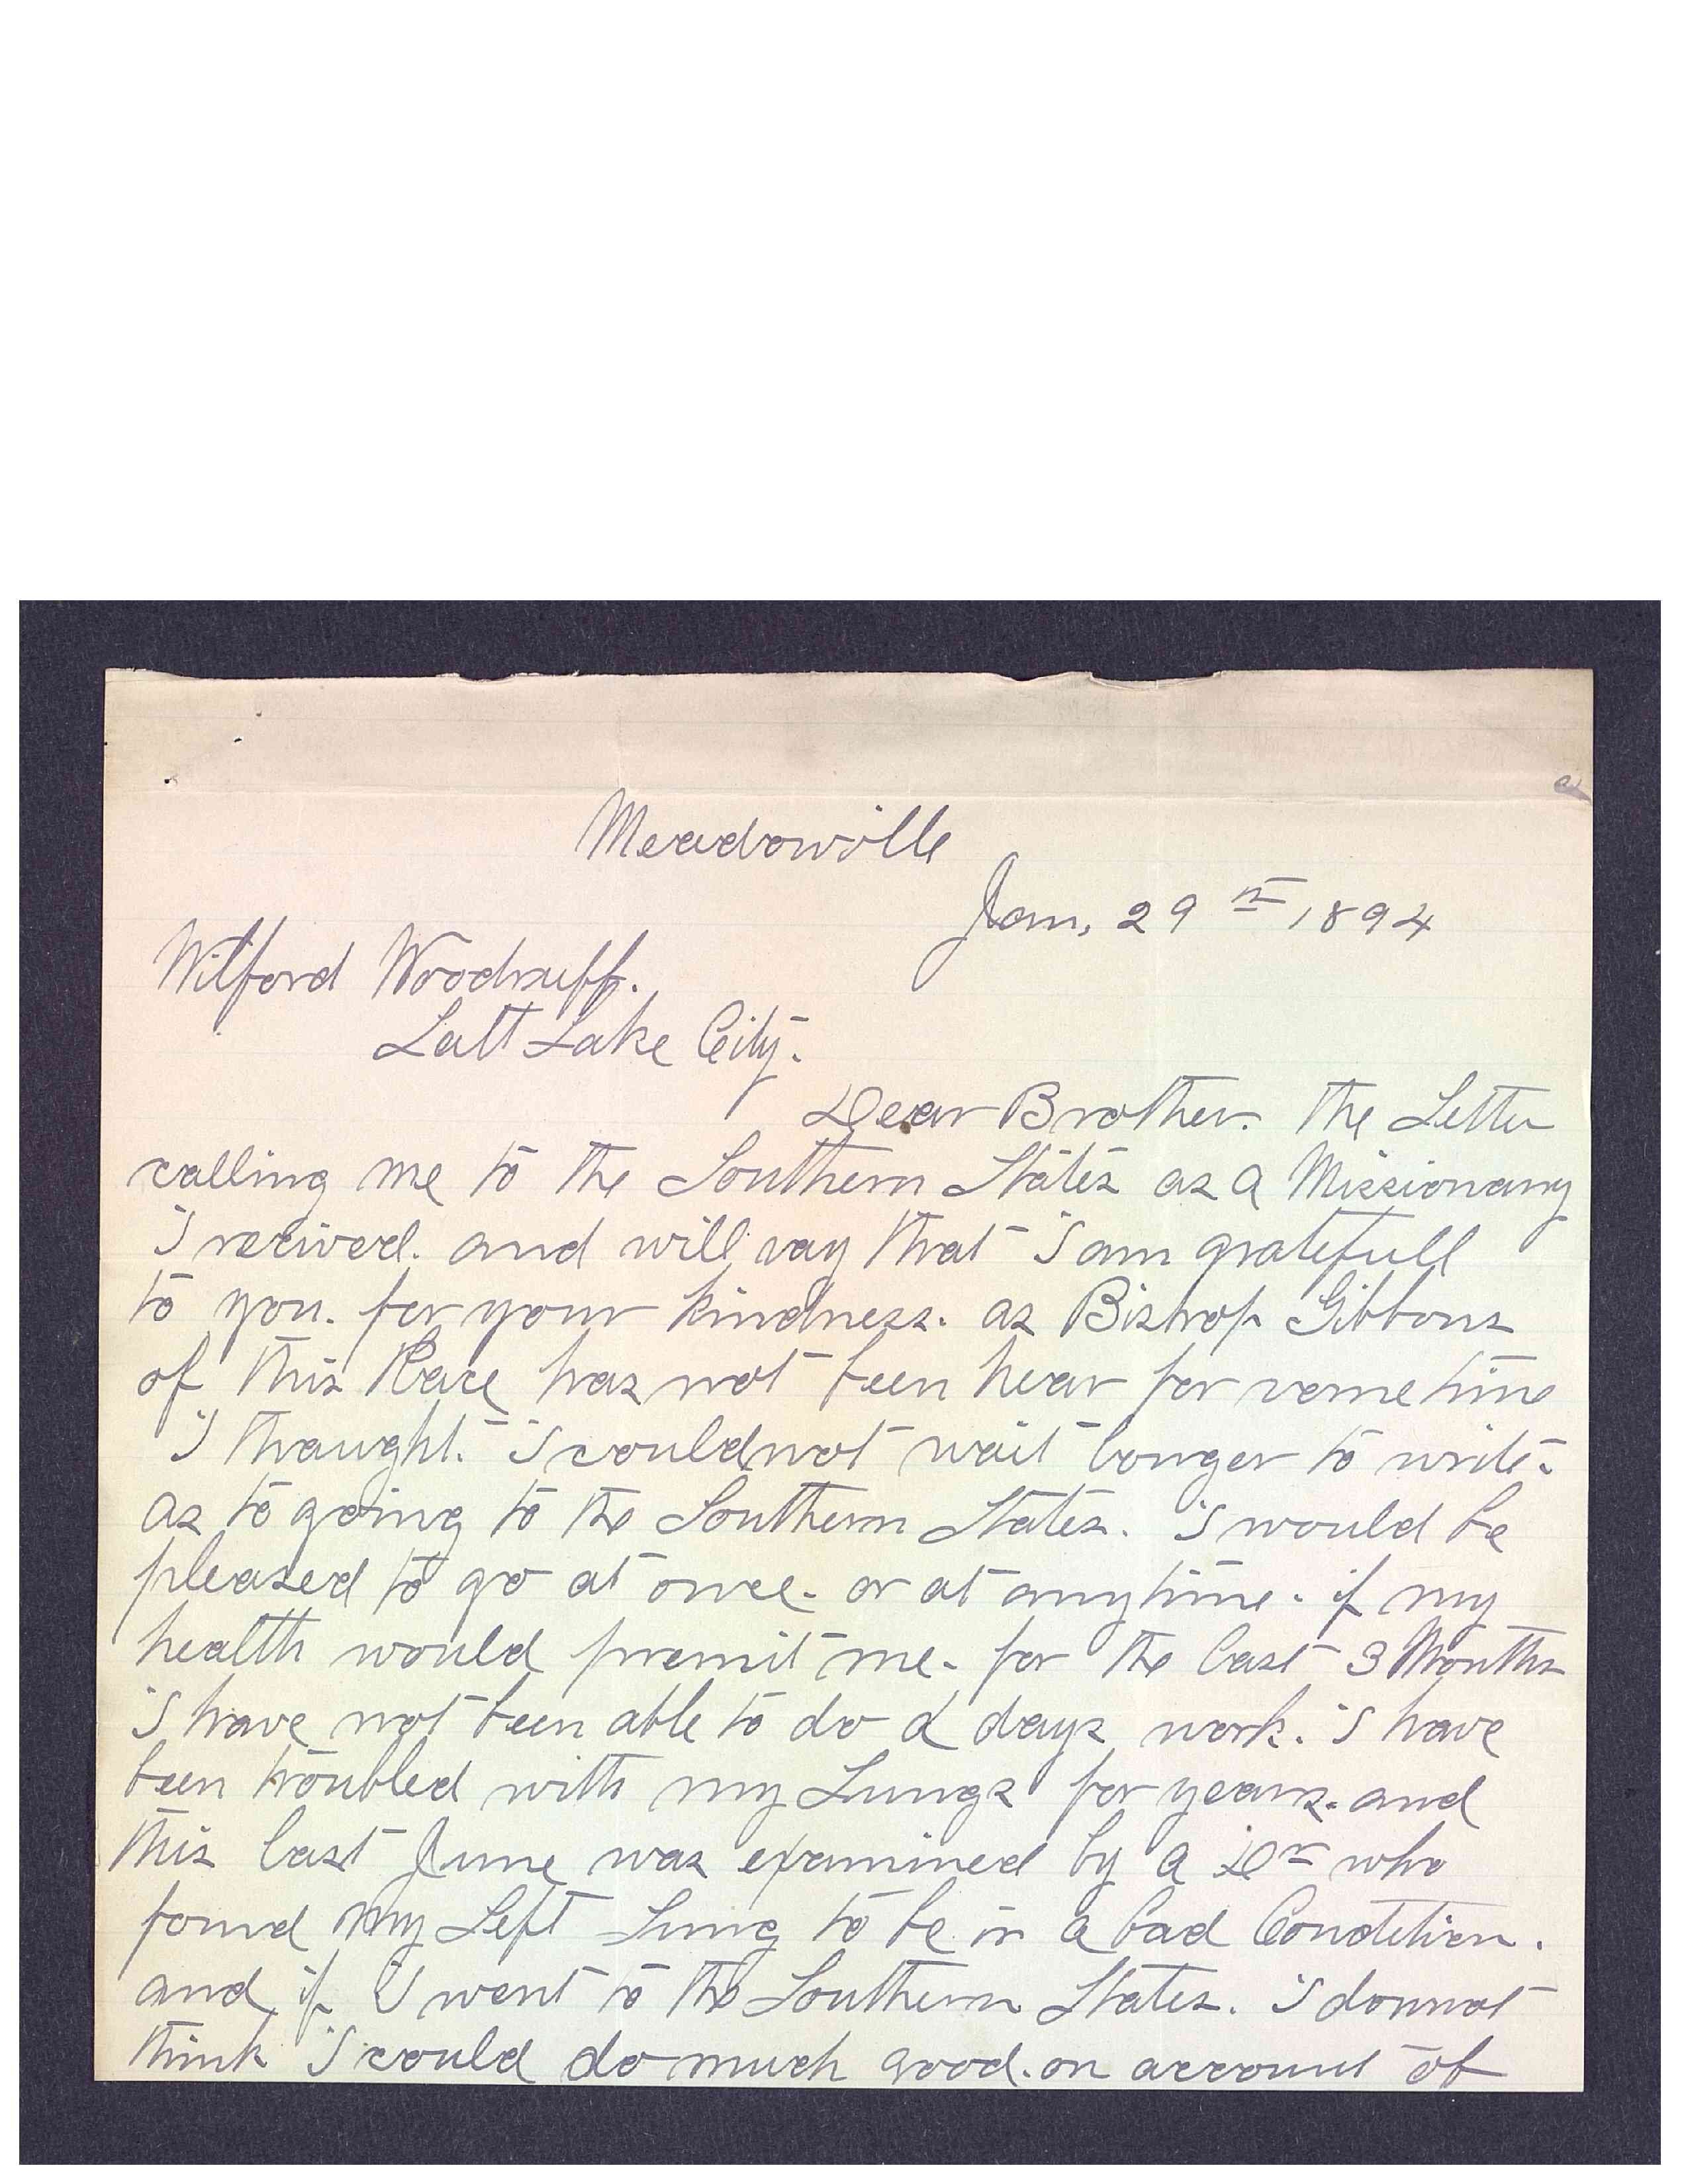 Meadowville
Jan, 29th 1894
Wilford Woodruff.
Salt Lake City.
Dear Brother. The Letter
calling me to the Southern States as a Missionary
I recived. and will say that I am gratefull
to you. for your kindness. as Bishop Gibbons
of this Place has not been hear for some time
I thaught. I could not wait longer to write.
as to going to the Southern States. I would be
pleased to go at once. or at any time. if my
health would premit me. for the last 3 Months
I have not been able to do a days work. I have
been troubled with my Lungs for years. and
this last June was examined by a Dr who
found my Left Lung to be in a bad Condetion.
and if I went to the Southern States. I donnot
think I could do much good. on account of